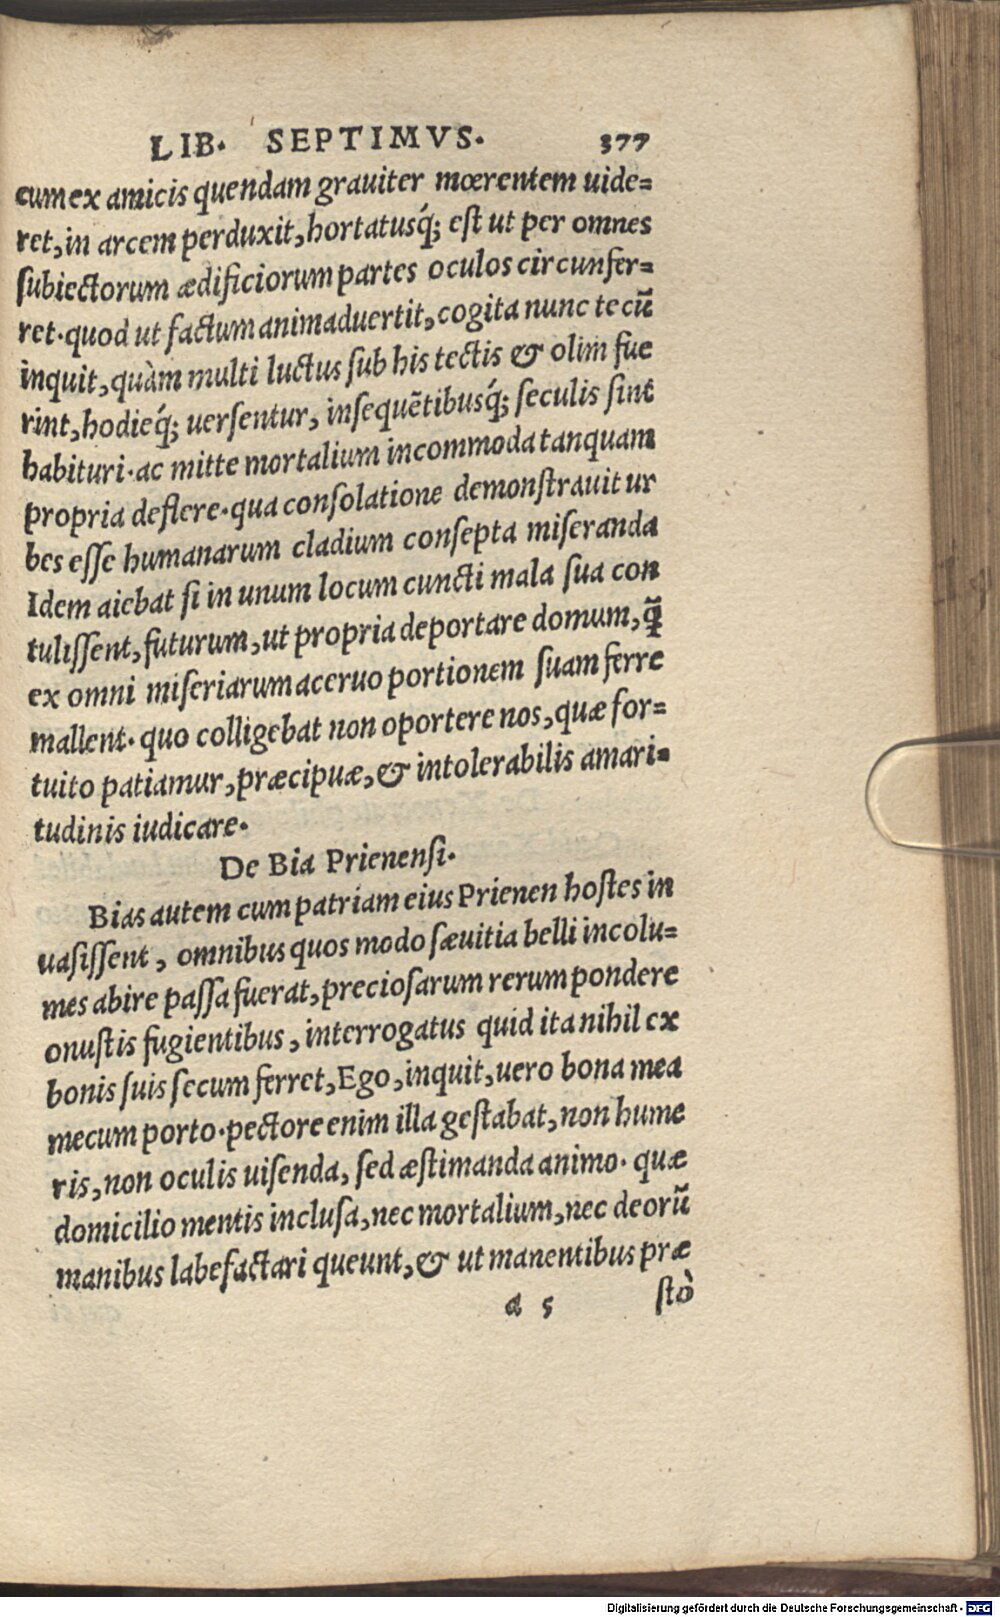 LIB. SEPTIMVS. 377
cum ex amicis quendam grauiter mœrentem uide=
ret, in arcem perduxit, hortatusq́; est ut per omnes
ſubiectorum ædificiorum partes oculos circunfer=
ret. quod ut factum animaduertit, cogita nunc tecũ
inquit, quàm multi luctus ſub his tectis & olim fue
rint, hodieq́; uerſentur, inſequẽtibusq́; ſeculis ſint
habituri. ac mitte mortalium incommoda tanquam
propria deflere. qua conſolatione demonſtrauit ur
bes eſſe humanarum cladium conſepta miſeranda
Idem aiebat ſi in unum locum cuncti mala ſua con
tuliſſent, futurum, ut propria deportare domum, q̃
ex omni miſeriarum aceruo portionem ſuam ferre
mallent. quo colligebat non oportere nos, quæ for=
tuito patiamur, præcipuæ, & intolerabilis amari=
tudinis iudicare.
De Bia Prienenſi.
Bias autem cum patriam eius Prienen hoſtes in
uaſiſſent, omnibus quos modo ſæuitia belli incolu=
mes abire paſſa fuerat, precioſarum rerum pondere
onuſtis fugientibus, interrogatus quid ita nihil ex
bonis ſuis ſecum ferret, Ego, inquit, uero bona mea
mecum porto. pectore enim illa geſtabat, non hume
ris, non oculis uiſenda, ſed æſtimanda animo. quæ
domicilio mentis incluſa, nec mortalium, nec deorũ
manibus labefactari queunt, & ut manentibus præ
a 5 ſtò
Digitalisierung gefördert durch die Deutsche Forschungsgemeinschaft - DFG